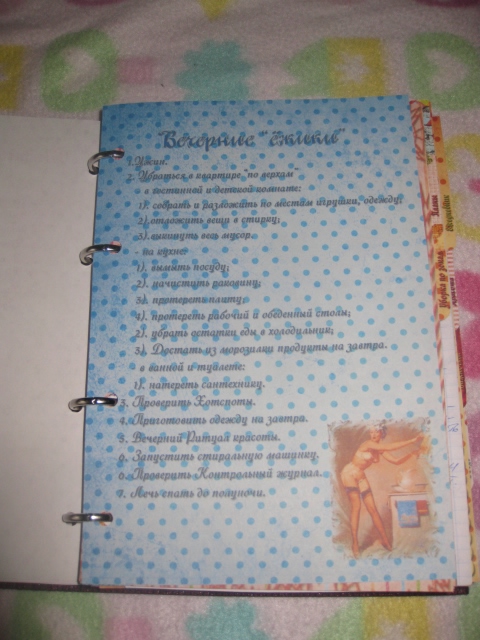 Вечернее "
1. Ужин.
2. Убраться в квартире "по верхам"
- в гостинной и детской комнате:
1). собрать и разложить по местам игрушки, одежду;
2). отложить вещи в стирку;
3). выкинуть весь мусор.
- на кухне:
1). вымыть посуду;
2). начистить раковину;
3). протереть плиту;
4). протереть рабочий и обеденный столы;
2). убрать остатки еды в холодильник;
3). Достать из морозилки продукты на завтра.
в ванной и туалете:
1). натереть сантехнику.
3. Проверить Хотспоты.
4. Приготовить одежду на завтра.
5. Вечерний Ритуал красоты.
6. Запустить стиральную машинку.
6. Проверить Контрольный журнал.
7. Лечь спать до полуночи.